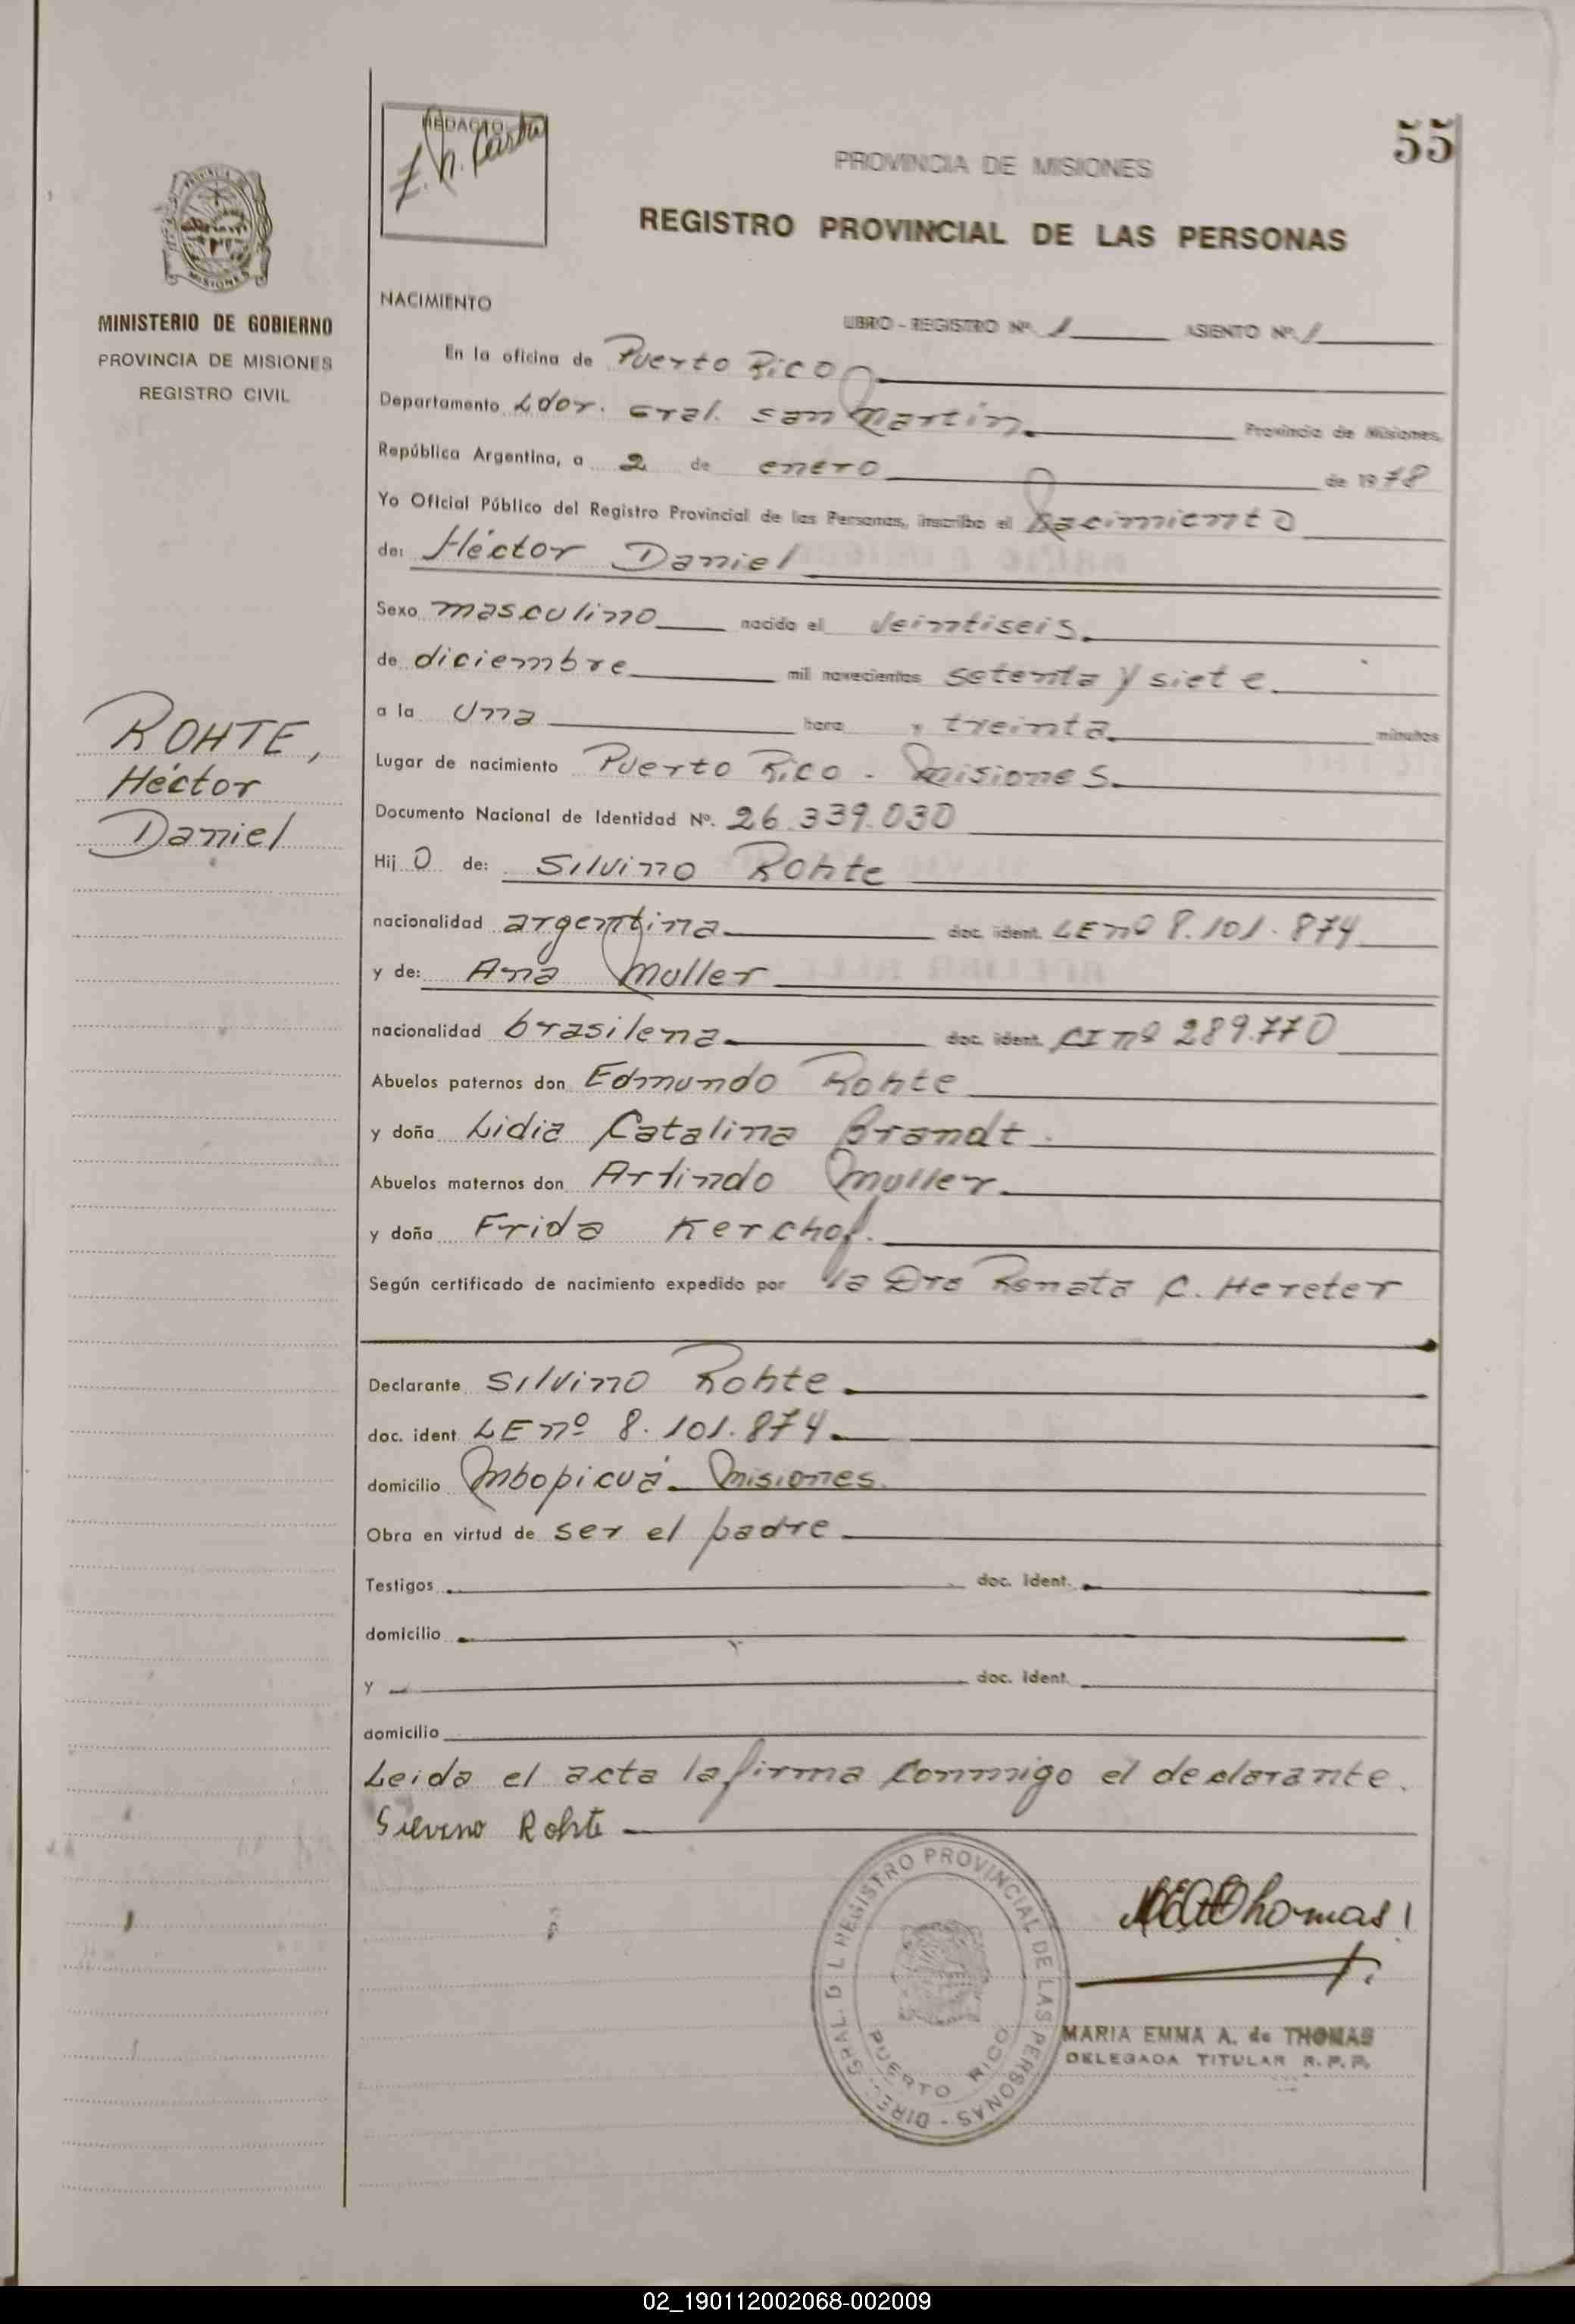 55
REDACTO
PROVINCIA DE MISIONES
REGISTRO PROVINCIAL DE LAS PERSONAS
MISIONES
MINISTERIO DE GOBIERNO
PROVINCIA DE MISIONES
REGISTRO CIVIL
ROHTE,
Héctor
Daniel
NACIMIENTO
LIBRO - REGISTRO Nº. 1 ASIENTO Nº. 1
En la oficina de Puerto Rico
Departamento Ldor. Gral. San Martín. Provincia de Misiones,
República Argentina, a 2 de enero de 1978
Yo Oficial Público del Registro Provincial de las Personas, inscribo el Nacimiento
de: Héctor Daniel
Sexo masculino nacido el veintiseis.
de diciembre mil novecientos setenta y siete.
a la una hora y treinta. minutos
Lugar de nacimiento Puerto Rico - Misiones.
Documento Nacional de Identidad Nº. 26.339.030
Hij o de: Silvino Rohte
nacionalidad argentina doc. ident. LE nº 8.101.874
y de: Ana Muller
nacionalidad brasilena doc. ident. CI nº 289.770
Abuelos paternos don Edmundo Rohte
y doña Lidia Catalina Brandt.
Abuelos maternos don Arlindo Muller
y doña Frida Kerchof.
Según certificado de nacimiento expedido por la Dra Renata C. Hereter
Declarante Silvino Rohte
doc. ident LE nº 8.101.874.
domicilio Mbopicuá - Misiones.
Obra en virtud de ser el padre
Testigos doc. Ident.
domicilio
y doc. Ident.
domicilio
Leida el acta la firma conmigo el declarante.
Silvino Rohte
DIREC. GRAL. D L REGISTRO PROVINCIAL DE LAS PERSONAS -
PUERTO RICO
MARIA EMMA A. de THOMAS
DELEGADA TITULAR R.P.P.
02_190112002068-002009